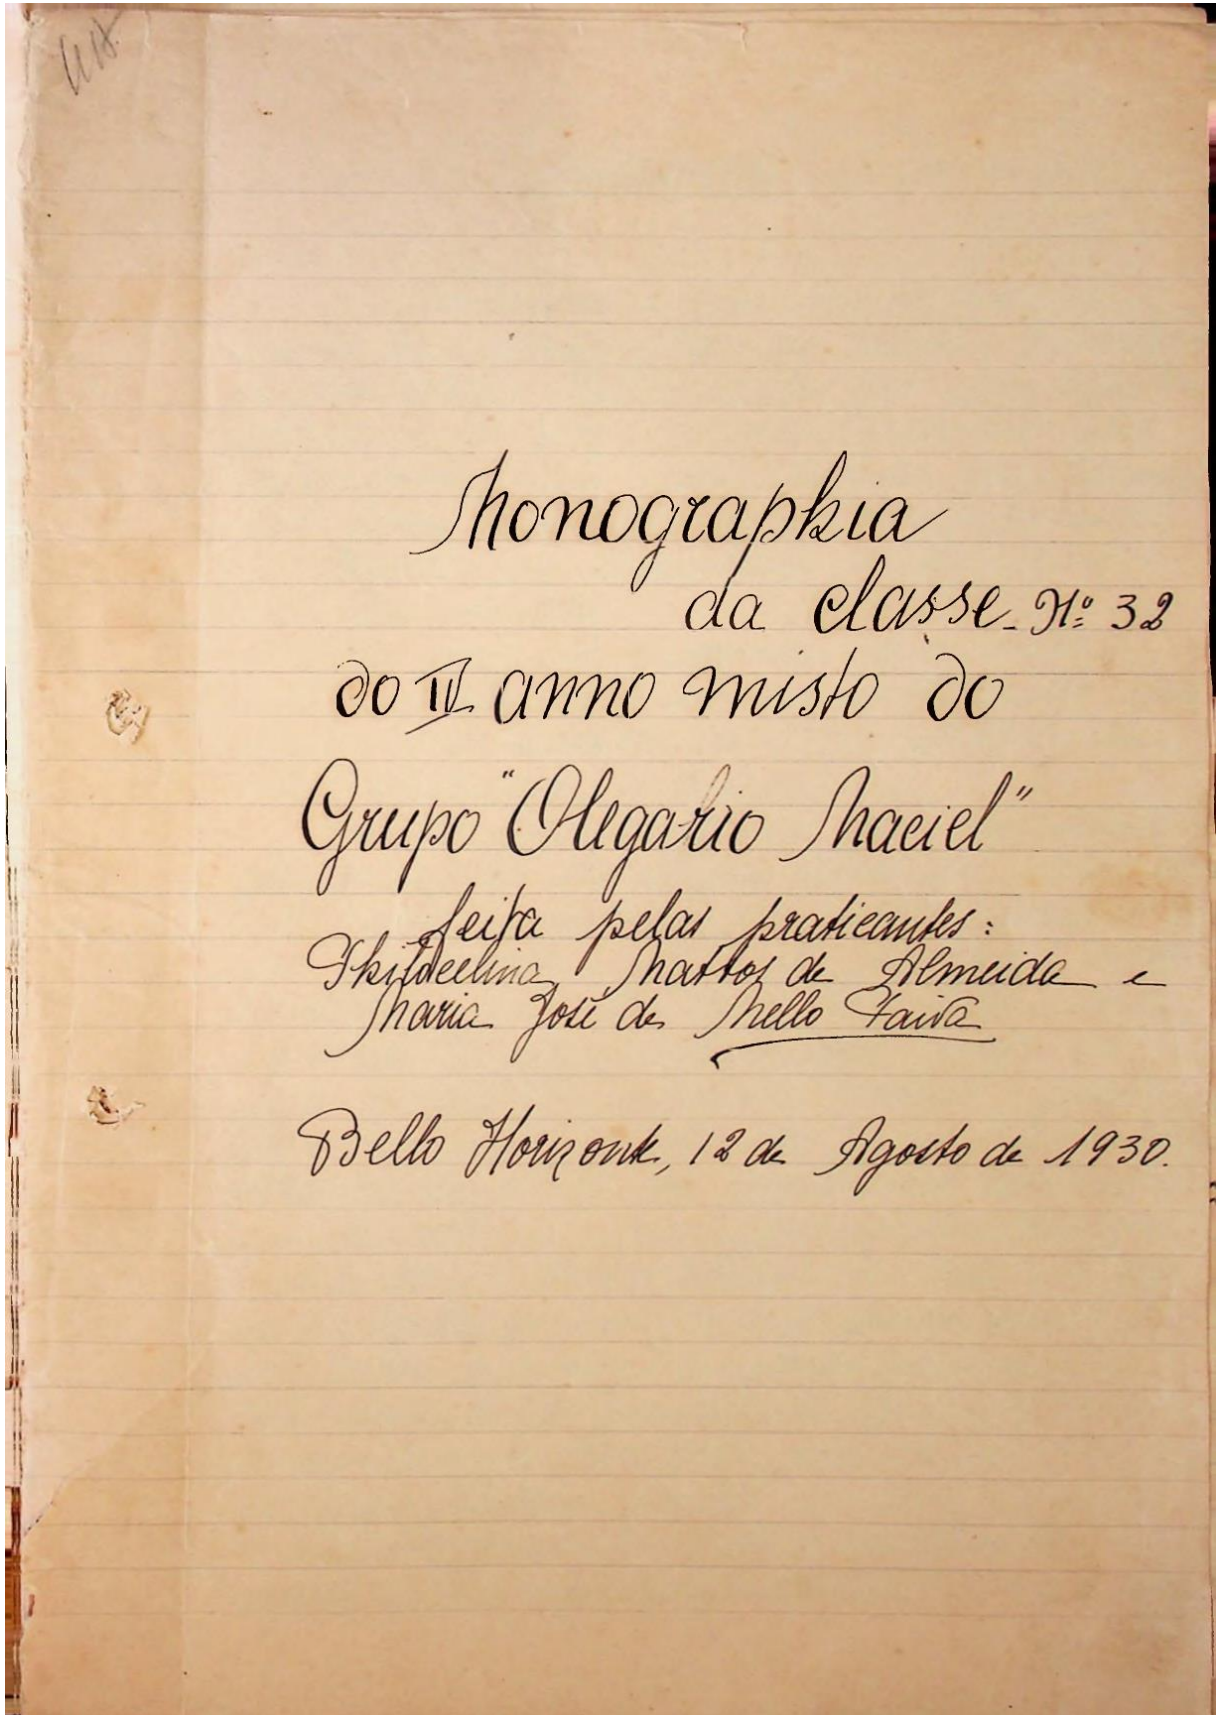 Monographia
da classe - Nº 32
do II anno misto do
Grupo "Olegario Maciel"
feita pelas praticantes:
Mattos de Almeida e
Maria José de Mello Paiva
Bello Horizonte, 12 de Agosto de 1930.